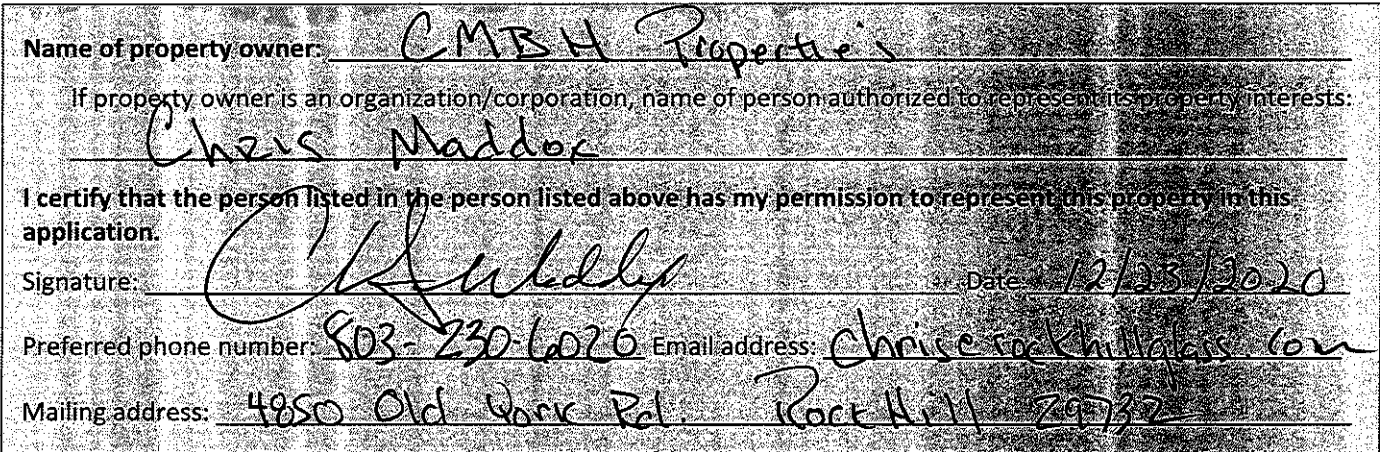 Name of property owner: CMBH Propertie's
If property owner is an organization/corporation, name of person authorized to represent its property interests:
Chris Maddox
I certify that the person listed in the person listed above has my permission to represent this property in this
application.
Signature: Date: 12/23/2020
Preferred phone number: 803-230-6020 Email address: Chris@rockhillglass.com
Mailing address: 4850 Old York Rd. Rock Hill 29732